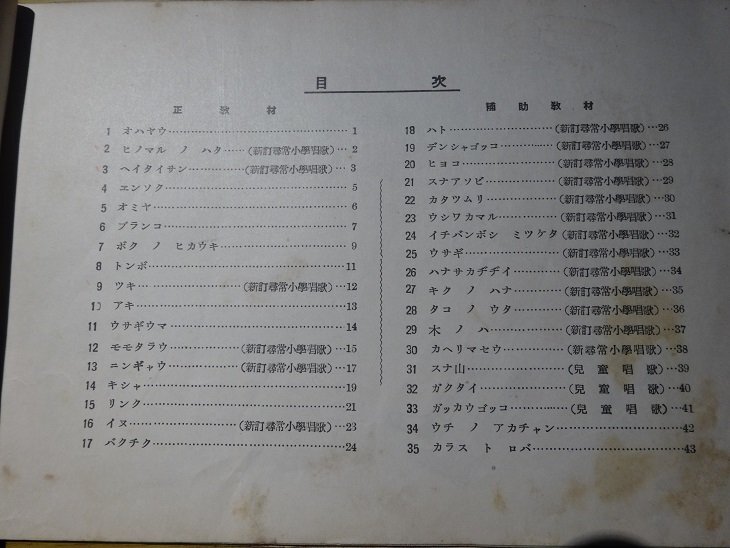 目次
正教材
1 オハヤウ……1
2 ヒノマル ノ ハタ……(新訂尋常小學唱歌)…2
3 ヘイタイサン……(新訂尋常小學唱歌)…3
4 エンソク……5
5 オミヤ……6
6 ブランコ……7
7 ボク ノ ヒカウキ……9
8 トンボ……11
9 ツキ……(新訂尋常小學唱歌)…12
10 アキ……13
11 ウサギウマ……14
12 モモタラウ……(新訂尋常小學唱歌)…15
13 ニンギャウ……(新訂尋常小學唱歌)…17
14 キシャ……19
15 リンク……21
16 イヌ……(新訂尋常小學唱歌)…23
17 バクチク……24
補助教材
18 ハト……(新訂尋常小學唱歌)…26
19 デンシャゴッコ……(新訂尋常小學唱歌)…27
20 ヒヨコ……(新訂尋常小學唱歌)…28
21 スナアソビ……(新訂尋常小學唱歌)…29
22 カタツムリ……(新訂尋常小學唱歌)…30
23 ウシワカマル……(新訂尋常小學唱歌)…31
24 イチバンボシ ミツケタ(新訂尋常小學唱歌)…32
25 ウサギ……(新訂尋常小學唱歌)…33
26 ハナサカヂヂイ……(新訂尋常小學唱歌)…34
27 キク ノ ハナ……(新訂尋常小學唱歌)…35
28 タコ ノ ウタ……(新訂尋常小學唱歌)…36
29 木 ノ ハ……(新訂尋常小學唱歌)…37
30 カヘリマセウ……(新尋常小學唱歌)…38
31 スナ山……(兒童唱歌)…39
32 ガクタイ……(兒童唱歌)…40
33 ガッカウゴッコ……(兒童唱歌)…41
34 ウチ ノ アカチャン……42
35 カラス ト ロバ……43